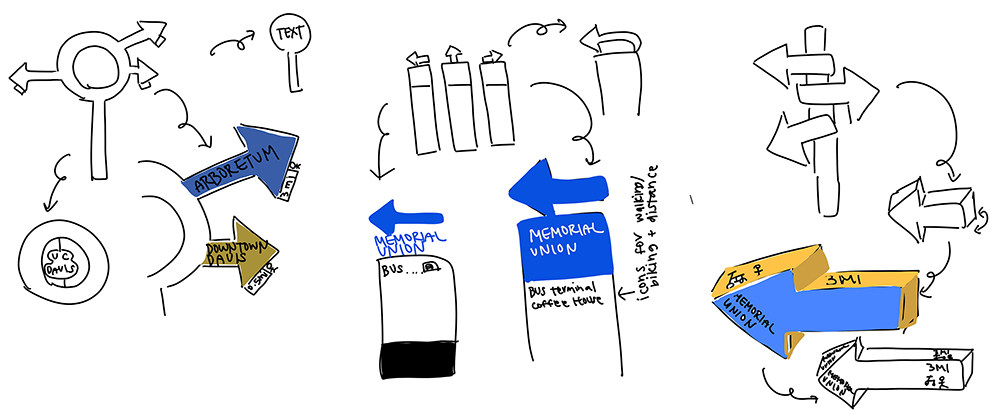 TEXT
ARBORETUM
3 mi
DOWNTOWN
DAVIS
0.5mi
UC
DAVIS
MEMORIAL
UNION
BUS...
MEMORIAL
UNION
BUS terminal
coffee House
icons for walking/
biking + distance
3MI
MEMORIAL
UNION
3MI
3MI
MEMORIAL
UNION